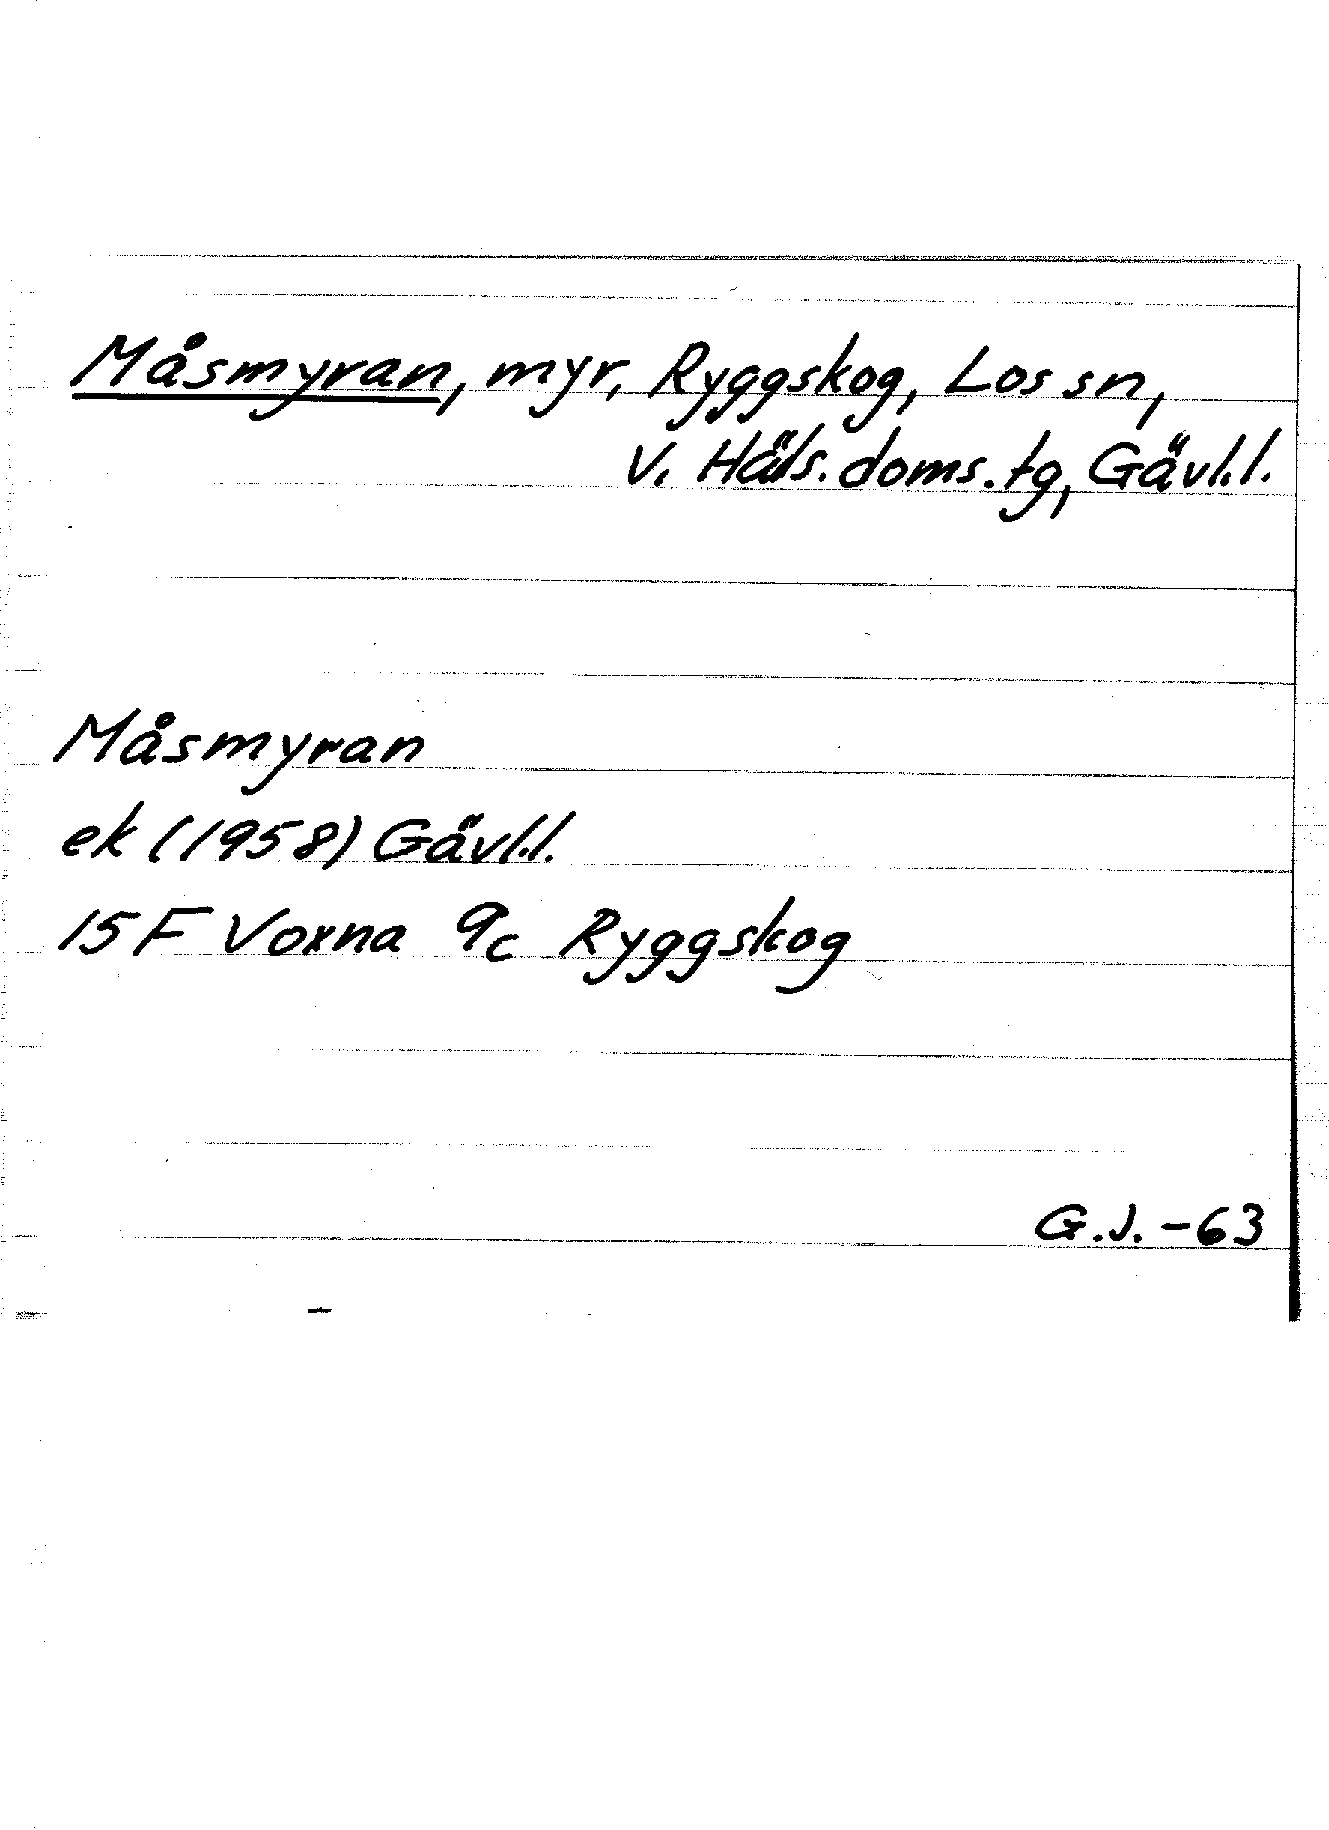 Måsmyran, myr, Ryggskog, Los sn,
V. Häls. doms. tg, Gävl.l.
Måsmyran
ek (1958) Gävl.l.
15 F Voxna 9c Ryggskog
G.J. -63